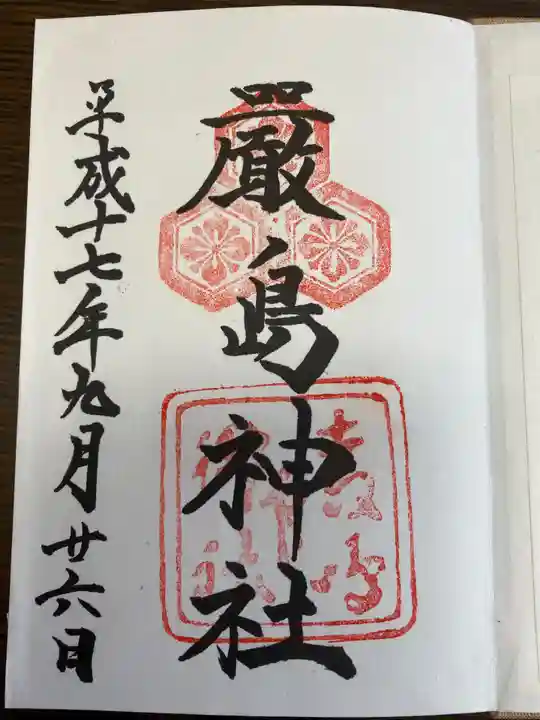 嚴島神社
平成十七年九月廿六日